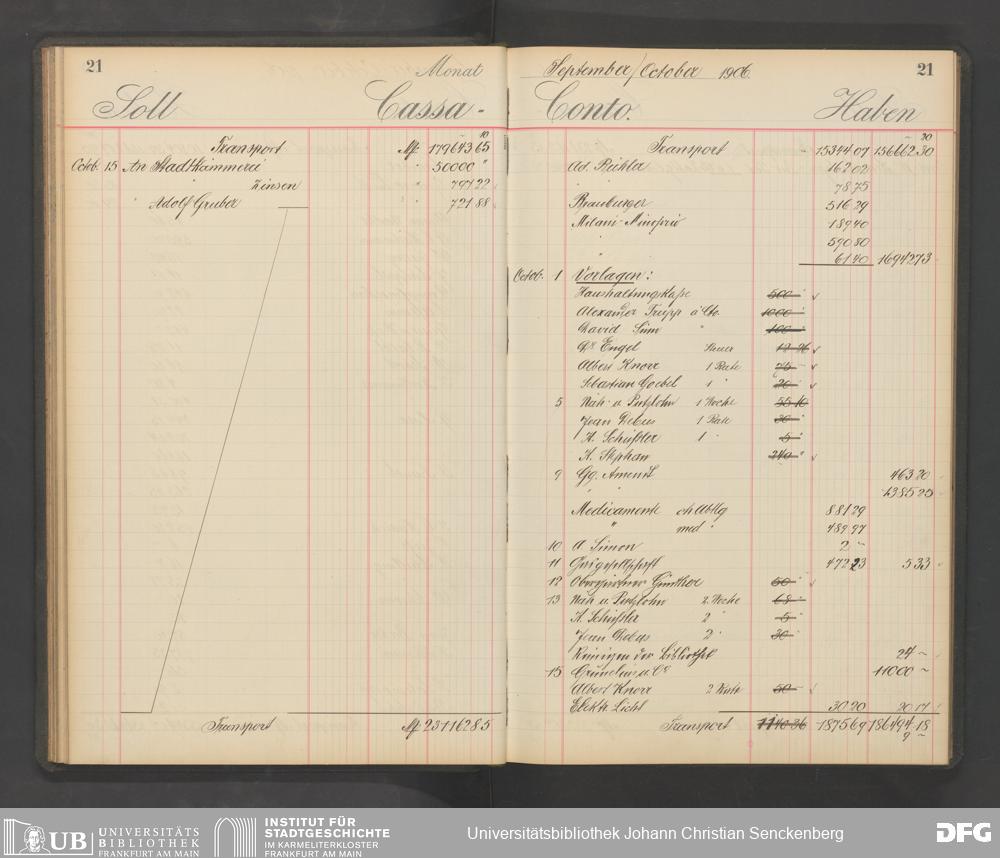 21
Monat
Soll Cassa-
Transport M 179643 65
10
Octob. 15 An Stadtkämmerei " 50000 "
" Zinsen " 797 22
" Adolf Gruber " 721 88
Transport M 231162 85
September/October 1906
21
Conto. Haben
20
Transport 15344 07 156662 30
Ad. Richter 162 02
" 78 75
Brauburger 516 29
Milani-Minoprio 189 40
590 80
" 61 40 16942 73
Octob. 1 Vorlagen:
Haushaltungskasse 500
Alexander á Cto. 1000
David " 100
Dr. Engel Steuer
Albert Knorr 1 Rate 75
Sebastian Goebel 1 " 20
5 Näh- u. Putzlohn 1 Woche 55 10
Jean 1 Rate 30
H. Schüssler 1 " 5
H. Stephan 240
9 Gg. Amendt 463 20
" 1385 20
Medicamente ch Abtlg 881 29
" med " 489 97
10 A Simon 2 –
11 Gasgesellschaft 472 23 533
12 Günther 60
13 Näh u. Putzlohn 2. Woche 68
H. Schüssler 2 " 5
Jean 2 " 30
Reinigen der Bibliothek 24 –
15 Grunelius u. Co 11000 –
Albert Knorr 2 Rate 50
Elektr. Licht 30 20 20 17
Transport 1140 36 18756 9 186494 18
9 –
UB UNIVERSITÄTS
BIBLIOTHEK
FRANKFURT AM MAIN
INSTITUT FÜR
STADTGESCHICHTE
IM KARMELITERKLOSTER
FRANKFURT AM MAIN
Universitätsbibliothek Johann Christian Senckenberg
DFG